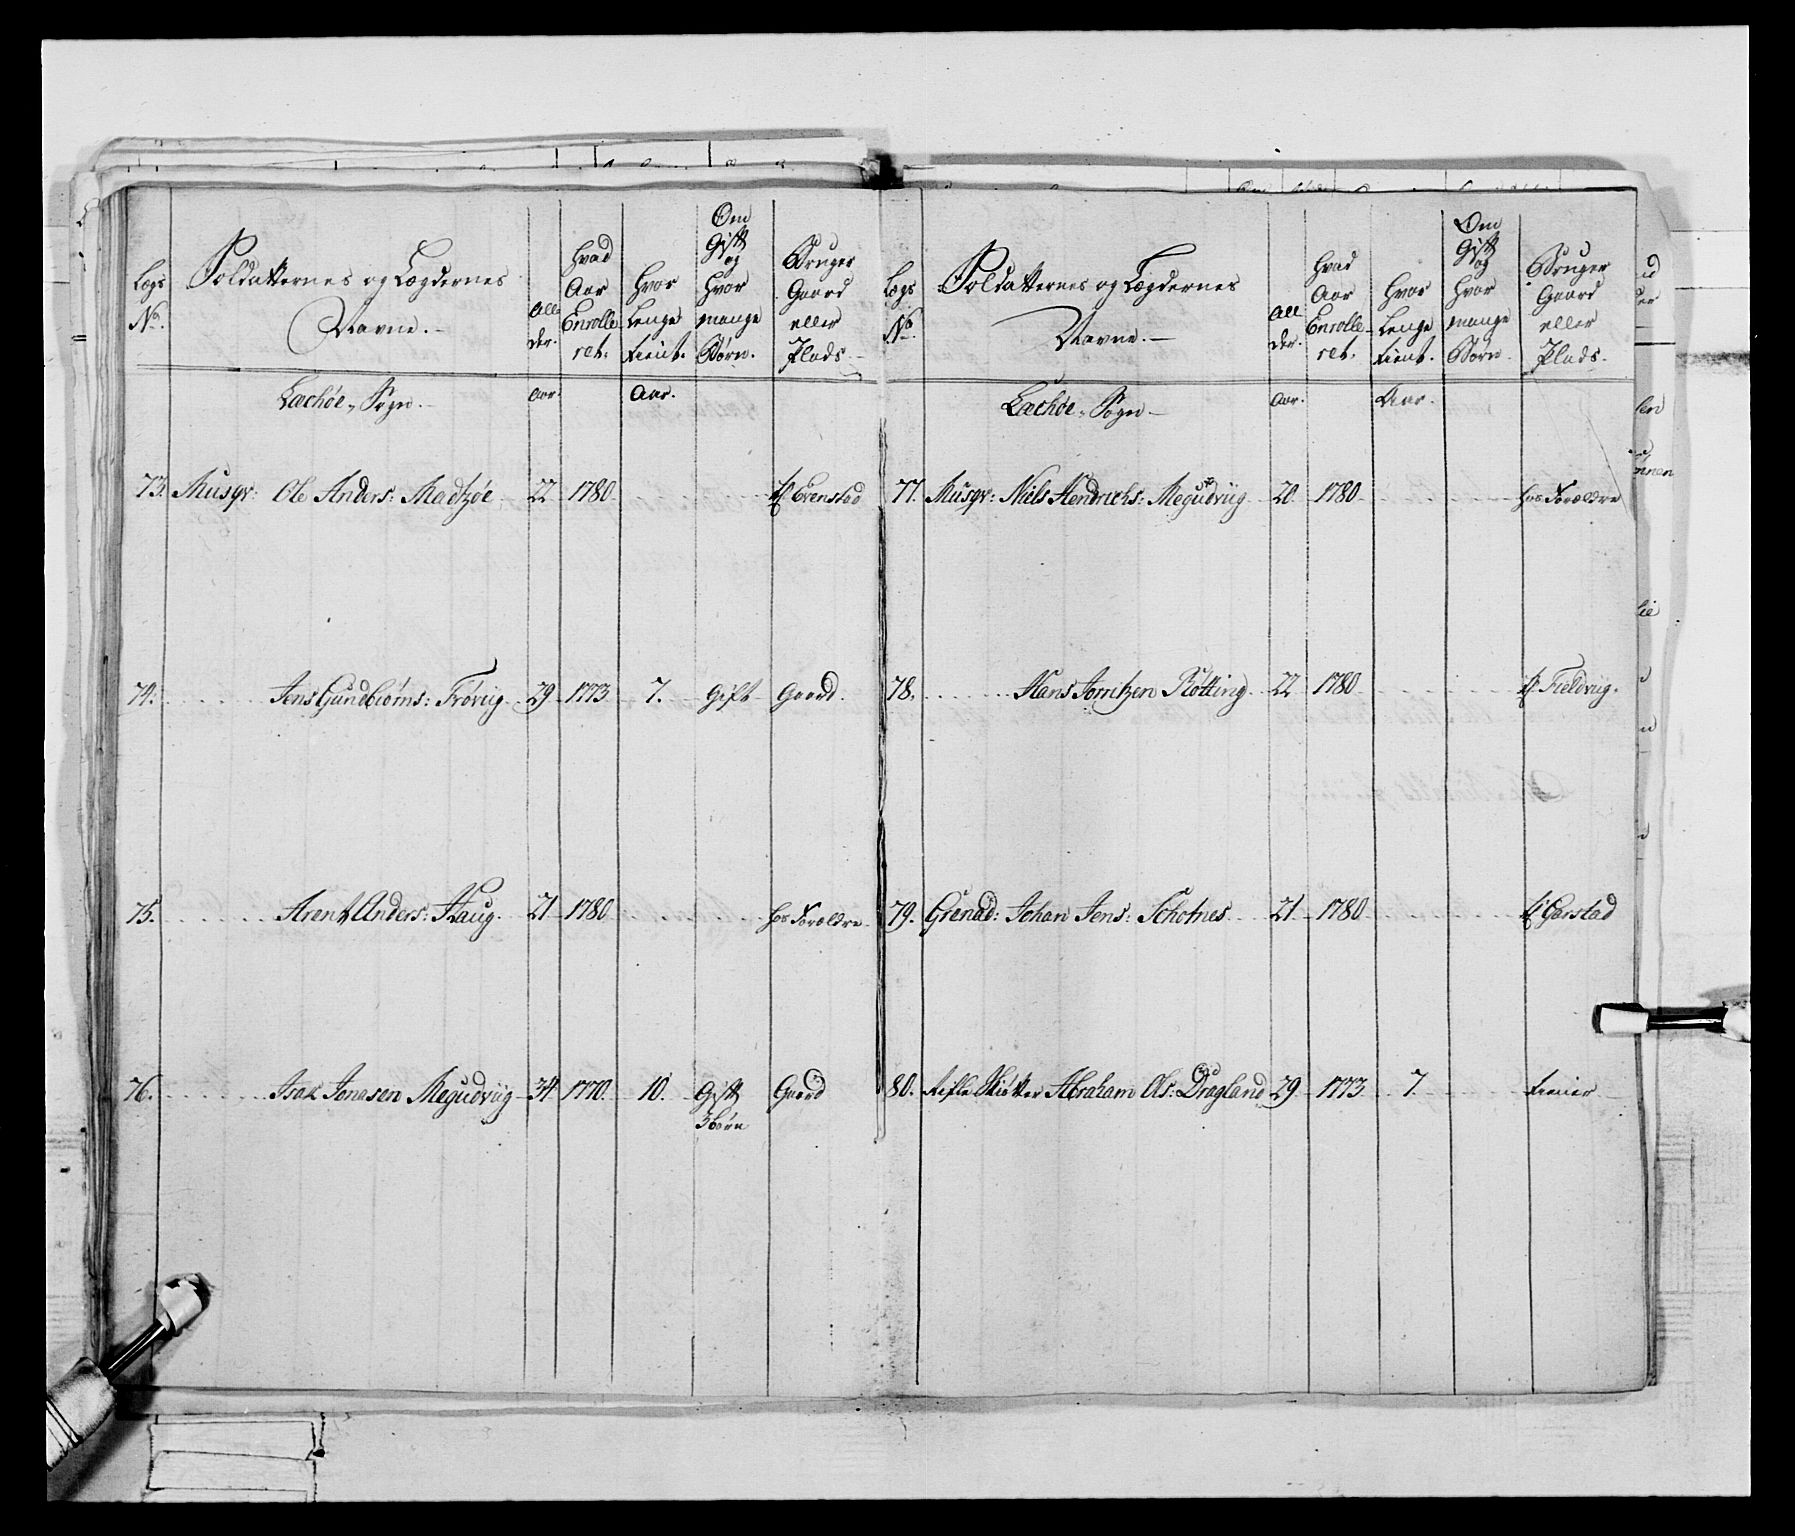 Lægs No.
Soldatternes og Lægdernes Navne.
Allder.
Hvad Aar Enrolleret.
Hvor Lenge tient.
Om Gift og Hvor mange Børn.
Bruger Gaard eller Plads.
Lechøe Sogn.
Aar.
Aar.
73. Musqr: Ole Anders: Madtzøe 22 1780 Evenstad
74. Jens Gundbiørns: Frøvig 29 1773 7. Gift Gaard.
75. Arent Anders: Haug. 21 1780 hos Forældre
76. Isak Jonasen Megudviig 34 1770 10. Gift 3 børn Gaard
Lægs No.
Soldatternes og Lægdernes Navne.
Allder.
Hvad Aar Enrolleret.
Hvor Lenge tient.
Om Gift og Hvor mange Børn.
Bruger Gaard eller Plads.
Lechøe Sogn
Aar.
Aar.
77. Musqr: Niels Hendrichs: Megudviig 20 1780 hos Forældre
78. Hans Jorritzen Røtting 22 1780 Fieldvig.
79. Grenad: Johan Jens: Schotnes 21 1780 Garstad
80. Rifle Skiøtter Abraham Ols: Dragland 29 1773 7. tiener